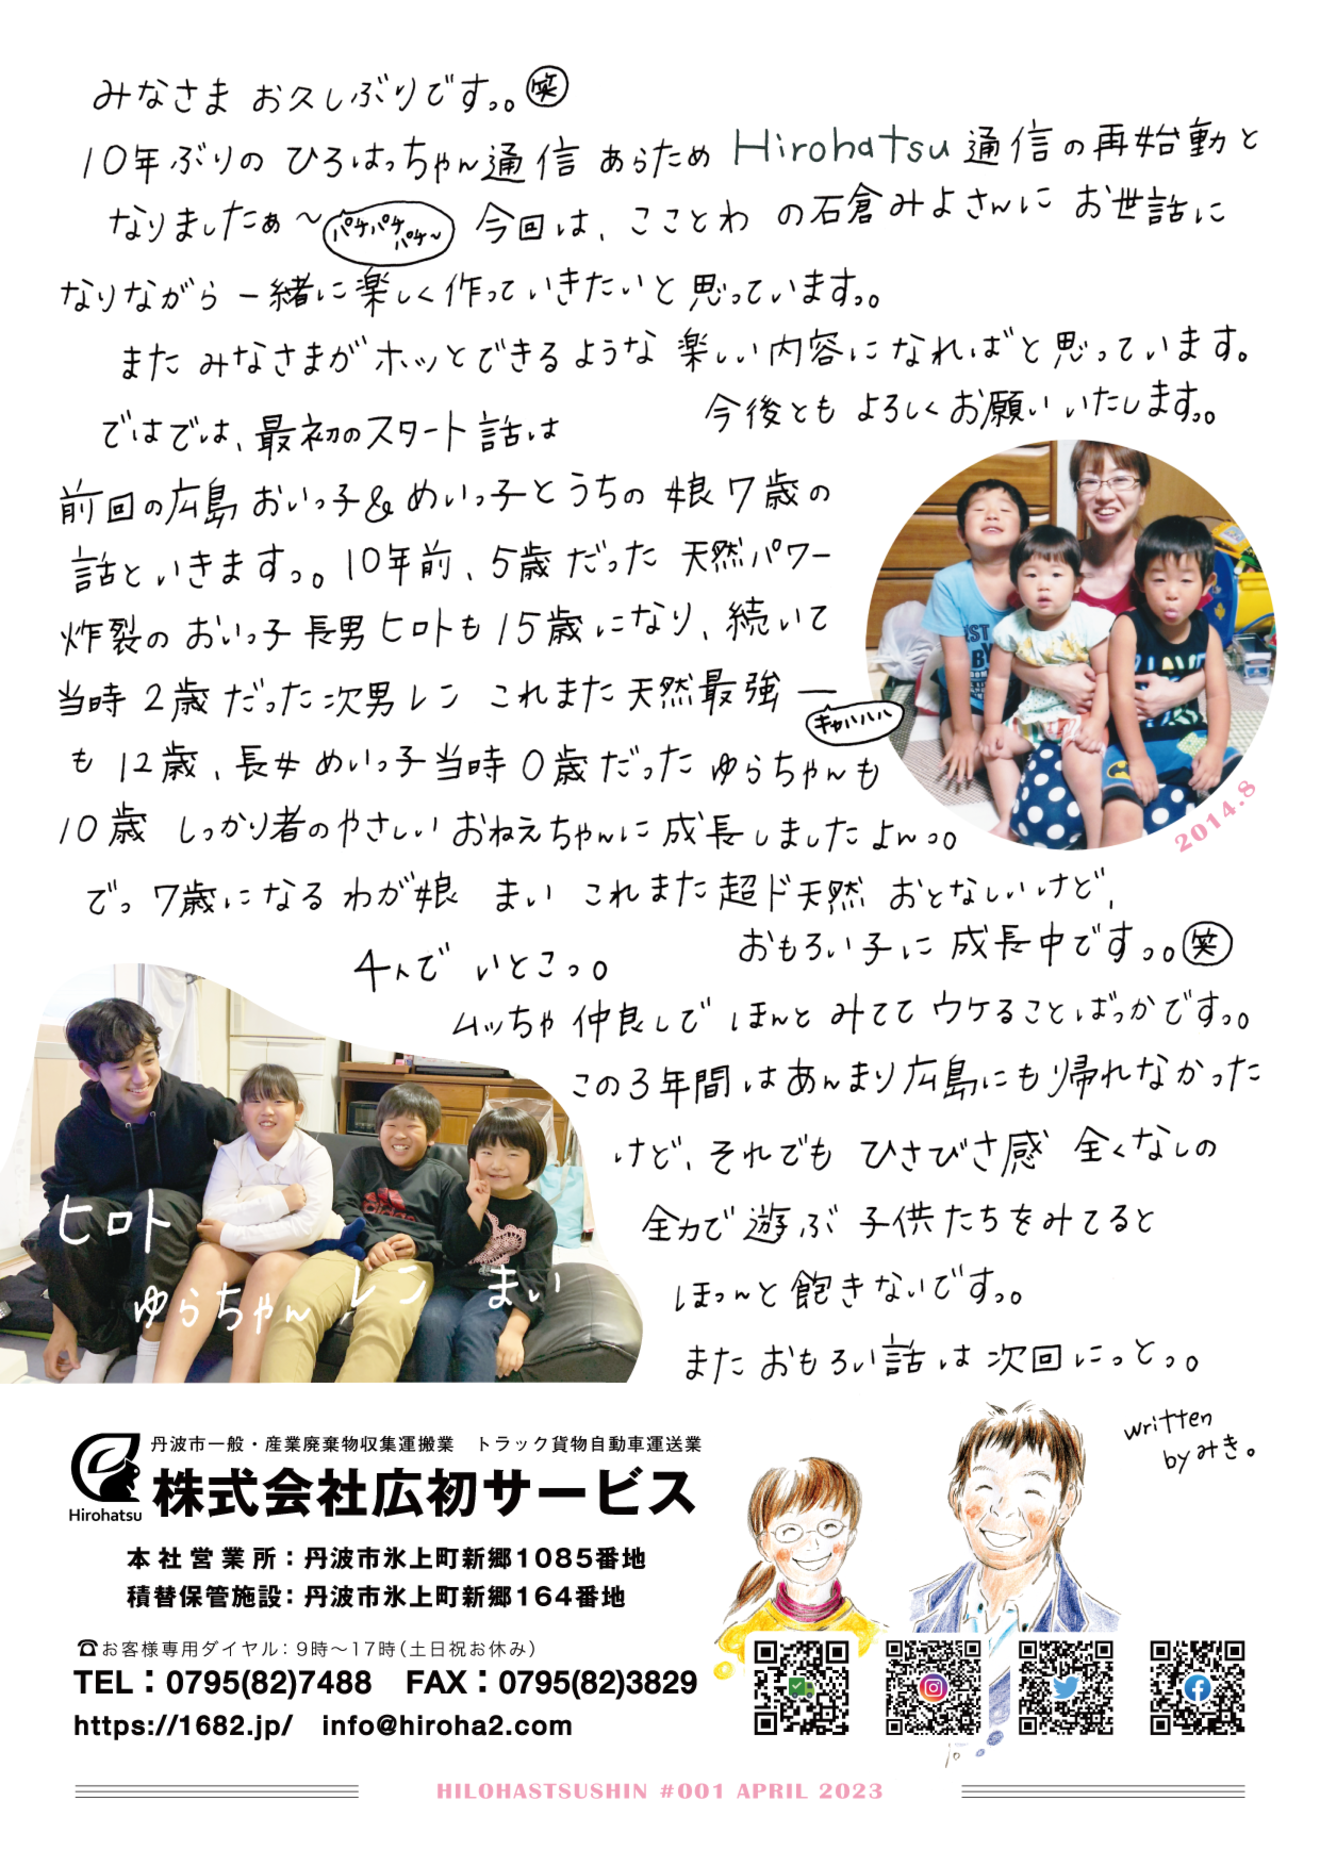 みなさま お久しぶりです。。㊗笑
10年ぶりの ひろはっちゃん通信 あらため Hirohatsu 通信の再始動と
なりましたぁ〜 パチパチパチ〜 今回は、こことわ の石倉みよさんに お世話に
なりながら 一緒に楽しく作っていきたいと思っています。。
また みなさまが ホッとできるような 楽しい内容になればと思っています。
今後とも よろしくお願いいたします。。
ではでは、最初のスタート話は
前回の広島 おいっ子&めいっ子とうちの 娘7歳の
話といきます。。10年前、5歳だった 天然パワー
炸裂の おいっ子 長男ヒロトも15歳になり、続いて
当時2歳だった次男レン これまた天然最強ー
キャハハハ
も12歳、長女めいっ子当時0歳だった ゆらちゃんも
10歳 しっかり者のやさしい おねえちゃんに 成長しましたよんっ。
でっ 7歳になる わが娘 まい これまた超ド天然 おとなしいけど、
おもろい子に 成長中ですっ。笑
4人で いとこっ。
ムッちゃ仲良しで ほんと みてて ウケることばっかですっ。
この3年間はあんまり広島にも帰れなかった
けど、それでも ひさびさ感 全くなしの
全力で 遊ぶ 子供たちをみてると
ほっんと飽きないです。。
また おもろい話は 次回にっとっ。
written
by みき。
2014.8
ヒロト
ゆらちゃん
レン
まい
Hirohatsu
丹波市一般・産業廃棄物収集運搬業 トラック貨物自動車運送業
株式会社広初サービス
本社営業所：丹波市氷上町新郷1085番地
積替保管施設：丹波市氷上町新郷164番地
☎お客様専用ダイヤル：9時〜17時（土日祝お休み）
TEL：0795(82)7488 FAX：0795(82)3829
https://1682.jp/ info@hiroha2.com
HILOHASTSUSHIN #001 APRIL 2023